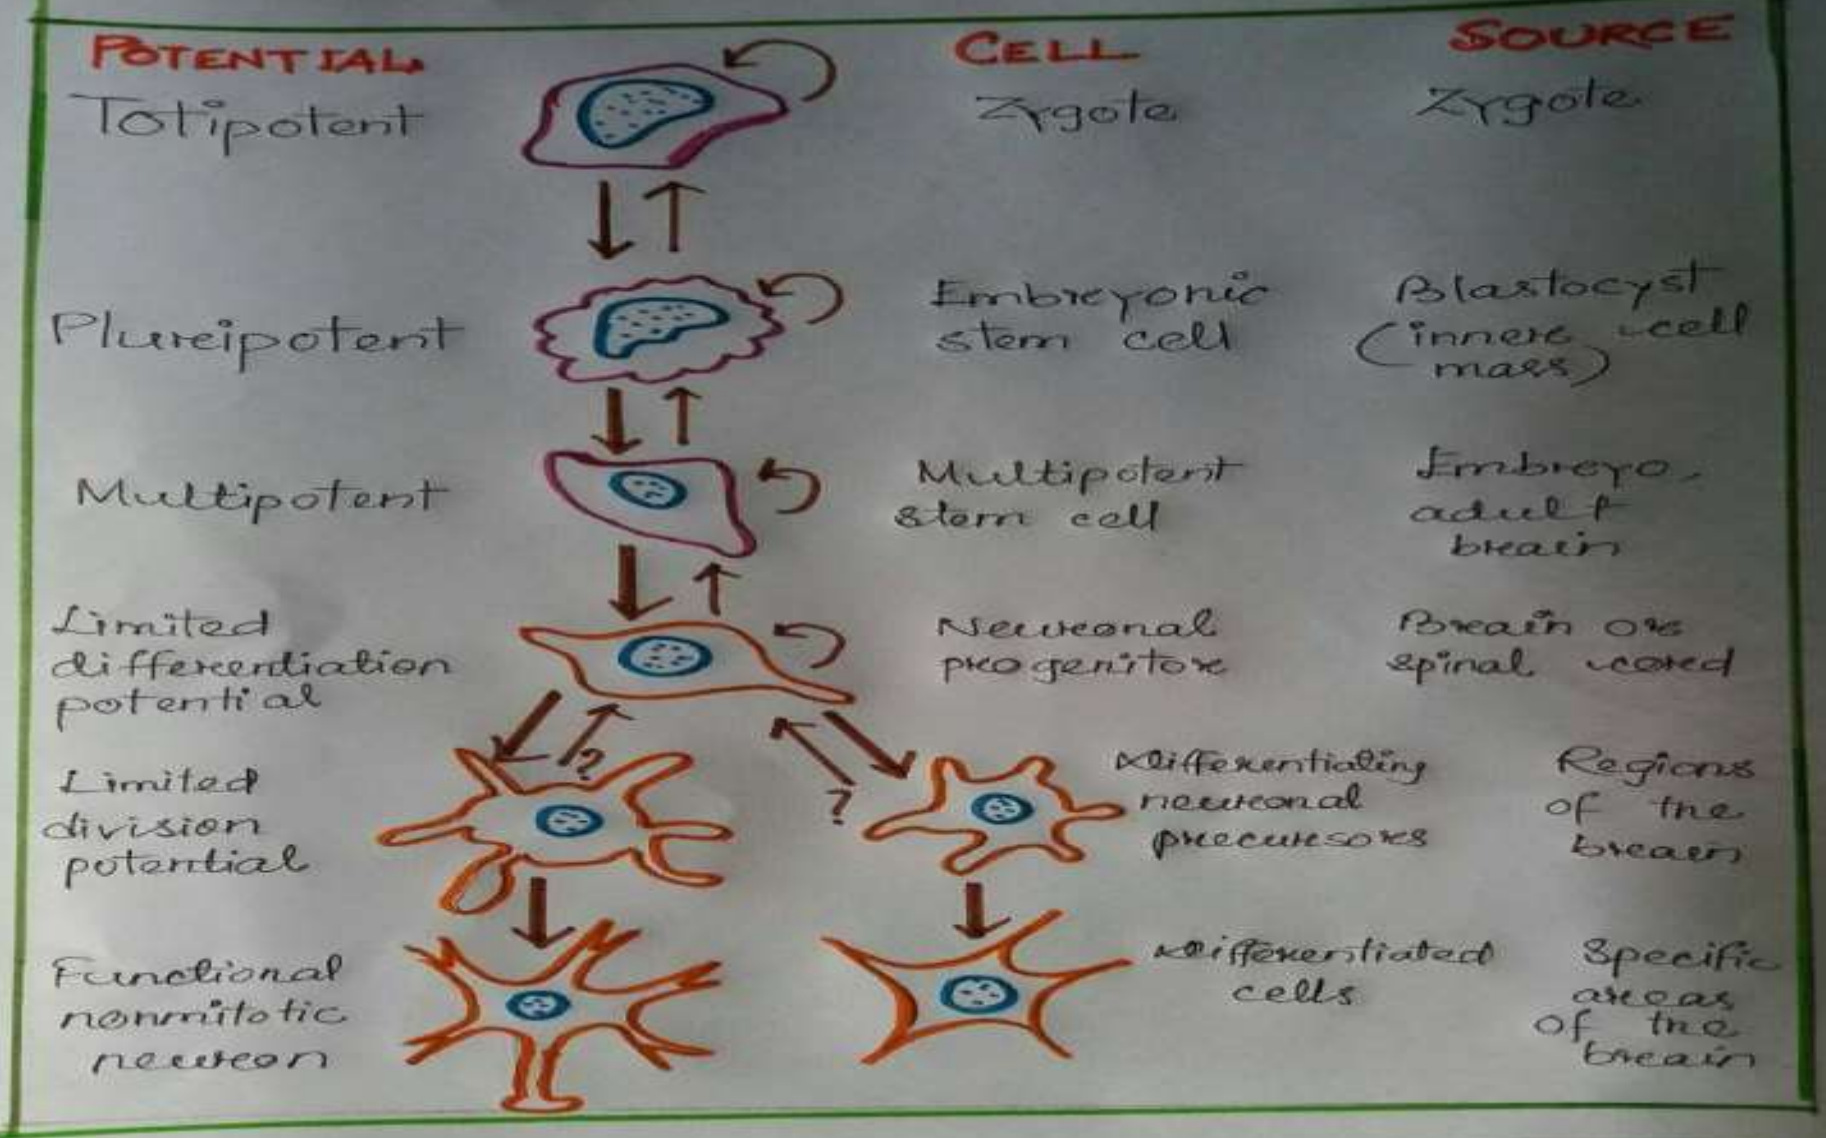 POTENTIAL
CELL
SOURCE
Totipotent
Zygote
Zygote
Pluripotent
Embryonic
stem cell
Blastocyst
(inner cell
mass)
Multipotent
Multipotent
stem cell
Embryo,
adult
brain
Limited
differentiation
potential
Neuronal
progenitor
Brain or
spinal cord
?
?
Limited
division
potential
Differentiating
neuronal
precursors
Regions
of the
brain
Functional
nonmitotic
neuron
Differentiated
cells
Specific
areas
of the
brain